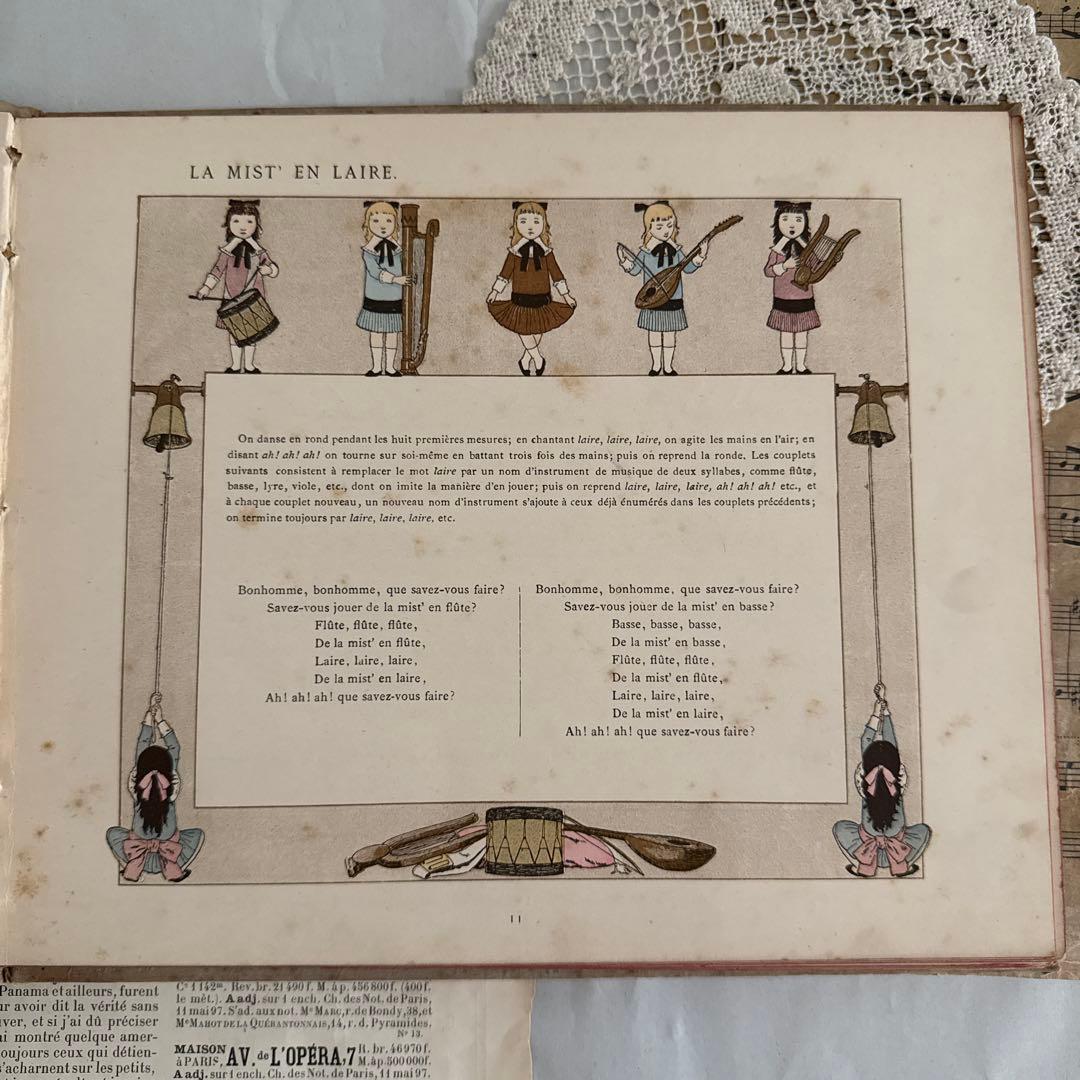 LA MIST' EN LAIRE.
On danse en rond pendant les huit premières mesures; en chantant laire, laire, laire, on agite les mains en l'air; en
disant ah! ah! ah! on tourne sur soi-même en battant trois fois des mains; puis on reprend la ronde. Les couplets
suivants consistent à remplacer le mot laire par un nom d'instrument de musique de deux syllabes, comme flûte,
basse, lyre, viole, etc., dont on imite la manière d'en jouer; puis on reprend laire, laire, laire, ah! ah! ah! etc., et
à chaque couplet nouveau, un nouveau nom d'instrument s'ajoute à ceux déjà énumérés dans les couplets précédents;
on termine toujours par laire, laire, laire, etc.
Bonhomme, bonhomme, que savez-vous faire?
Savez-vous jouer de la mist' en flûte?
Flûte, flûte, flûte,
De la mist' en flûte,
Laire, laire, laire,
De la mist' en laire,
Ah! ah! ah! que savez-vous faire?
Bonhomme, bonhomme, que savez-vous faire?
Savez-vous jouer de la mist' en basse?
Basse, basse, basse,
De la mist' en basse,
Flûte, flûte, flûte,
De la mist' en flûte,
Laire, laire, laire,
De la mist' en laire,
Ah! ah! ah! que savez-vous faire?
11
Panama et ailleurs, furent
ur avoir dit la vérité sans
ver, et si j'ai dû préciser
ai montré quelque amer-
toujours ceux qui détien-
s'acharnent sur les petits,
Cᵉ 1142ᵐ. Rev. br. 21490f. M. à p. 456800f. (400f.
le mèt.). A adj. sur 1 ench. Ch. des Not. de Paris,
11 mai 97. S'ad. aux not. Mᵉ MARC, r. de Bondy, 38, et
Mᵉ MAHOT DE LA QUÉRANTONNAIS, 14, r. d. Pyramides.
Nᵒ 13.
MAISON
à PARIS, AV. de L'OPÉRA, 7 R. br. 46970f.
M. à p. 500000f.
A adj. sur 1 ench. Ch. des Not. de Paris, 11 mai 97.